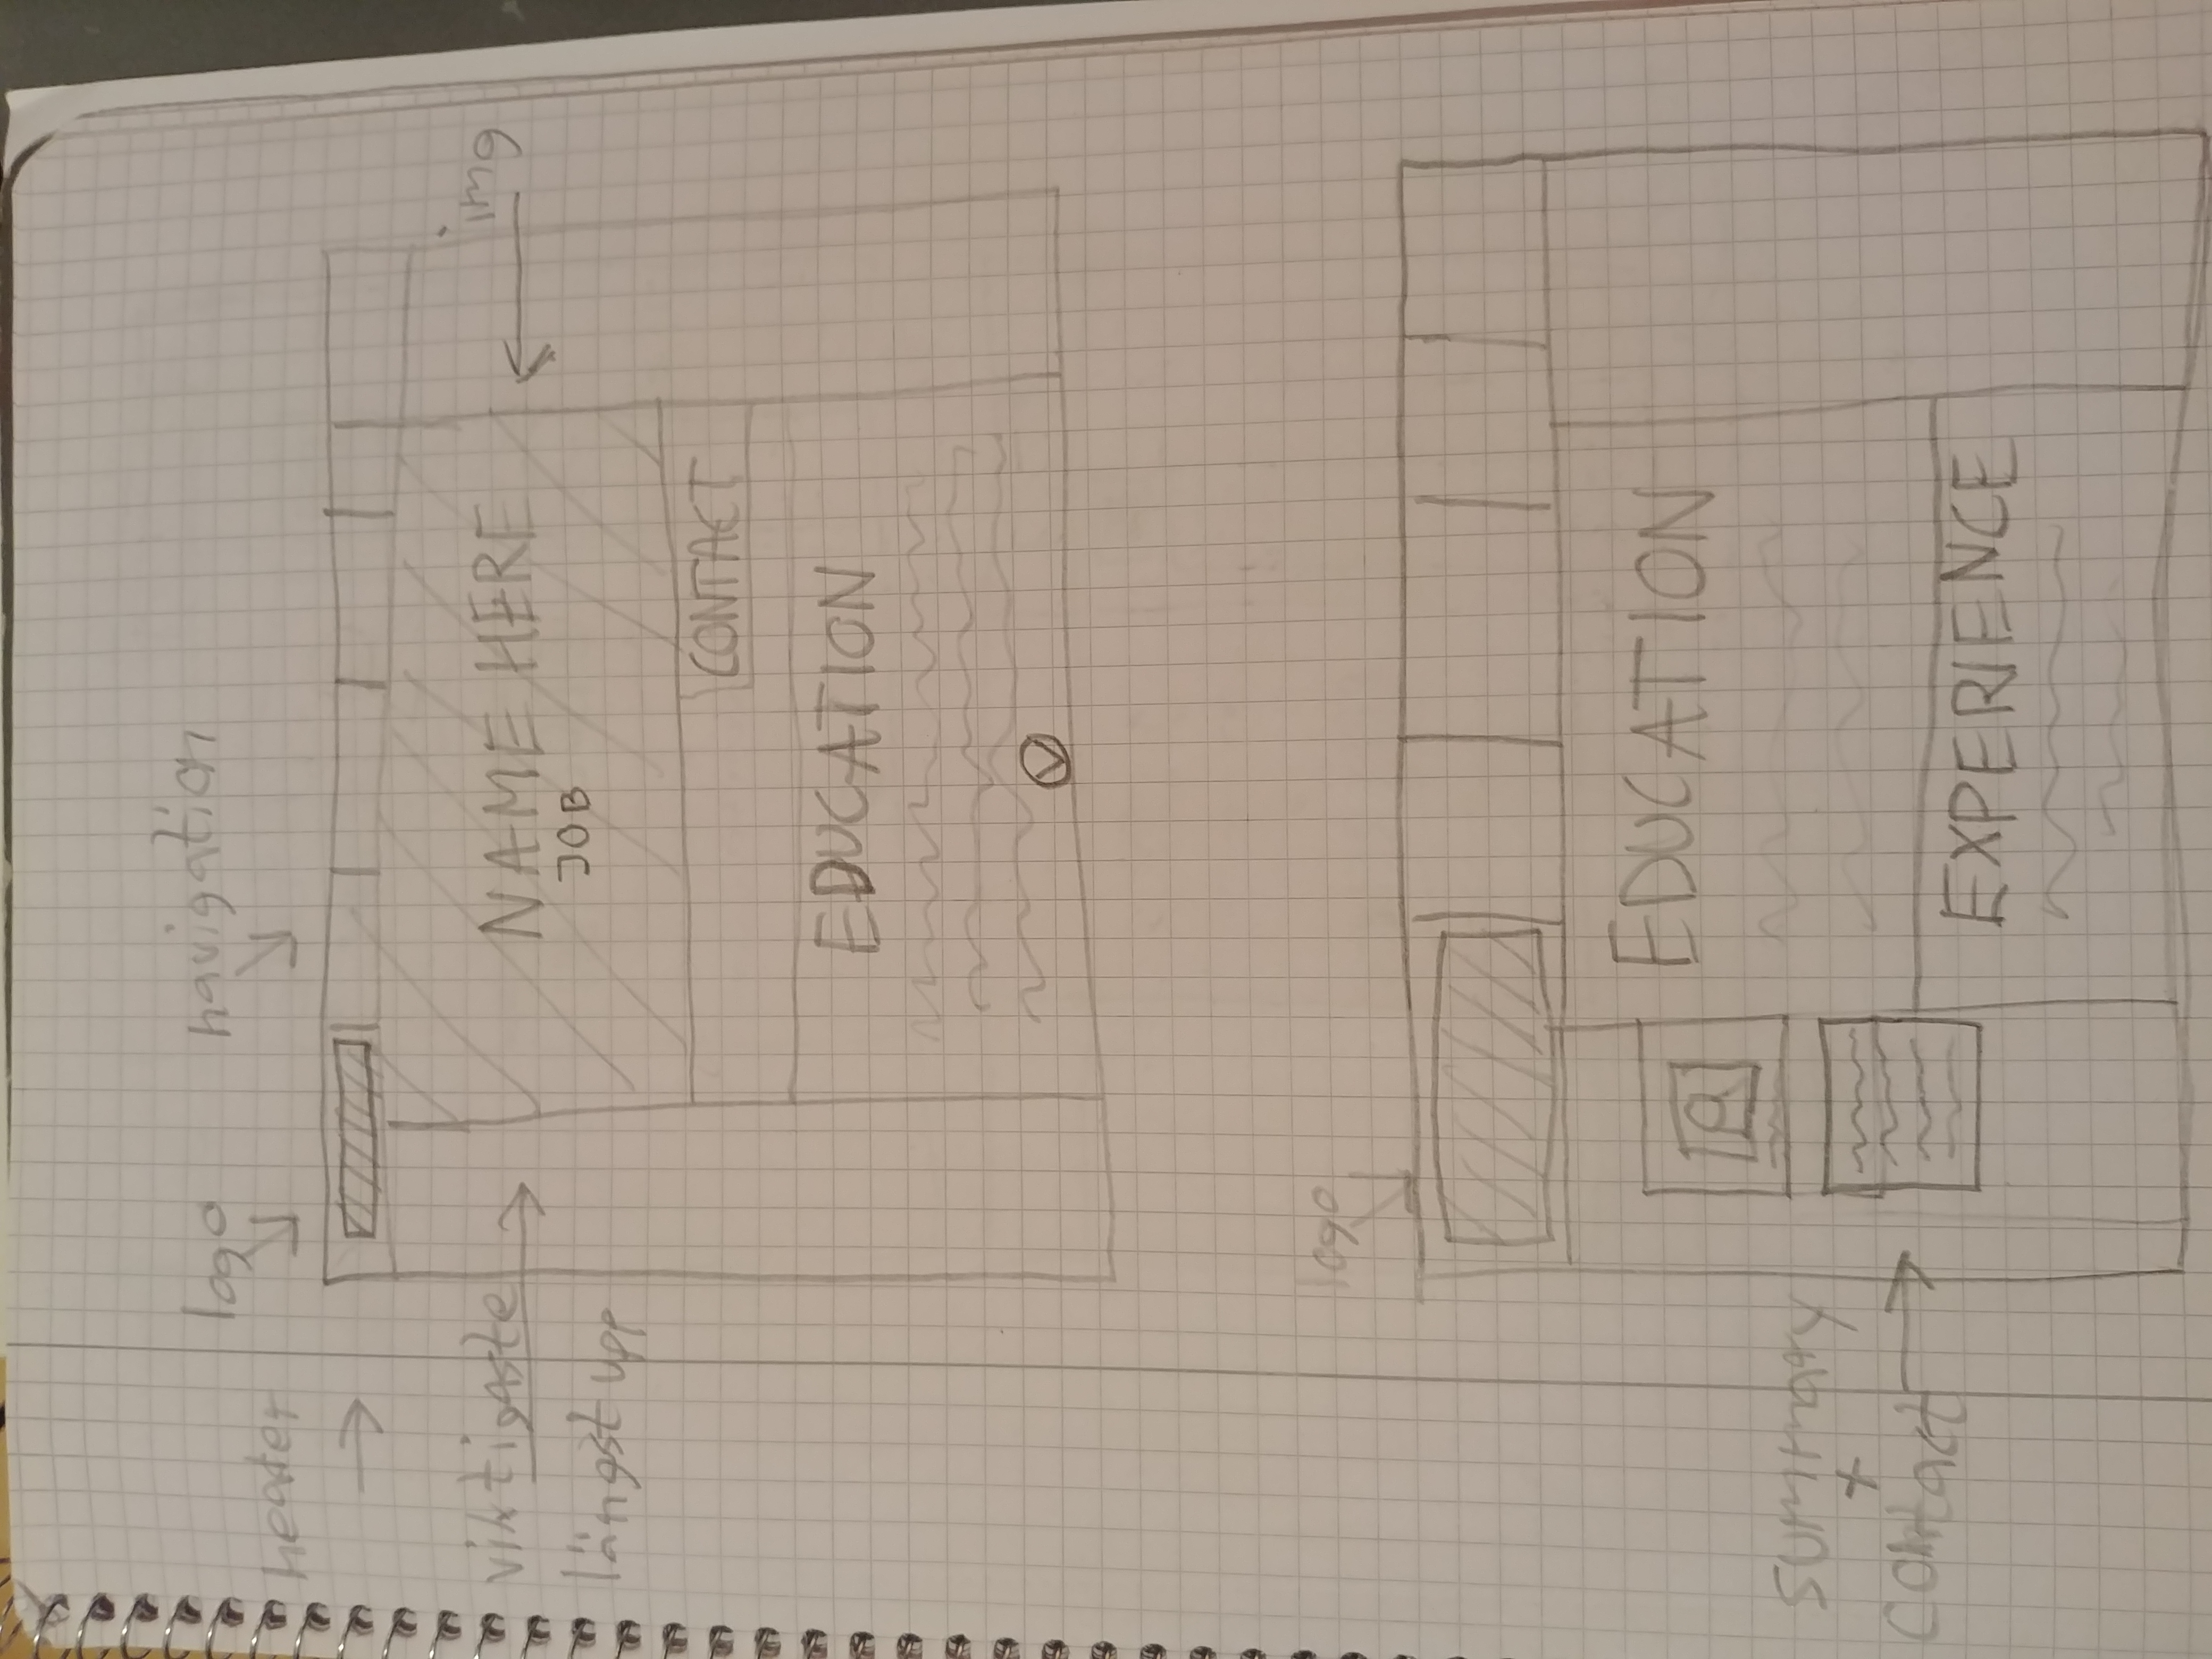 logo
navigation
header
viktigaste
längst upp
img
NAME HERE
JOB
CONTACT
EDUCATION
logo
EDUCATION
summary
+
contact
EXPERIENCE